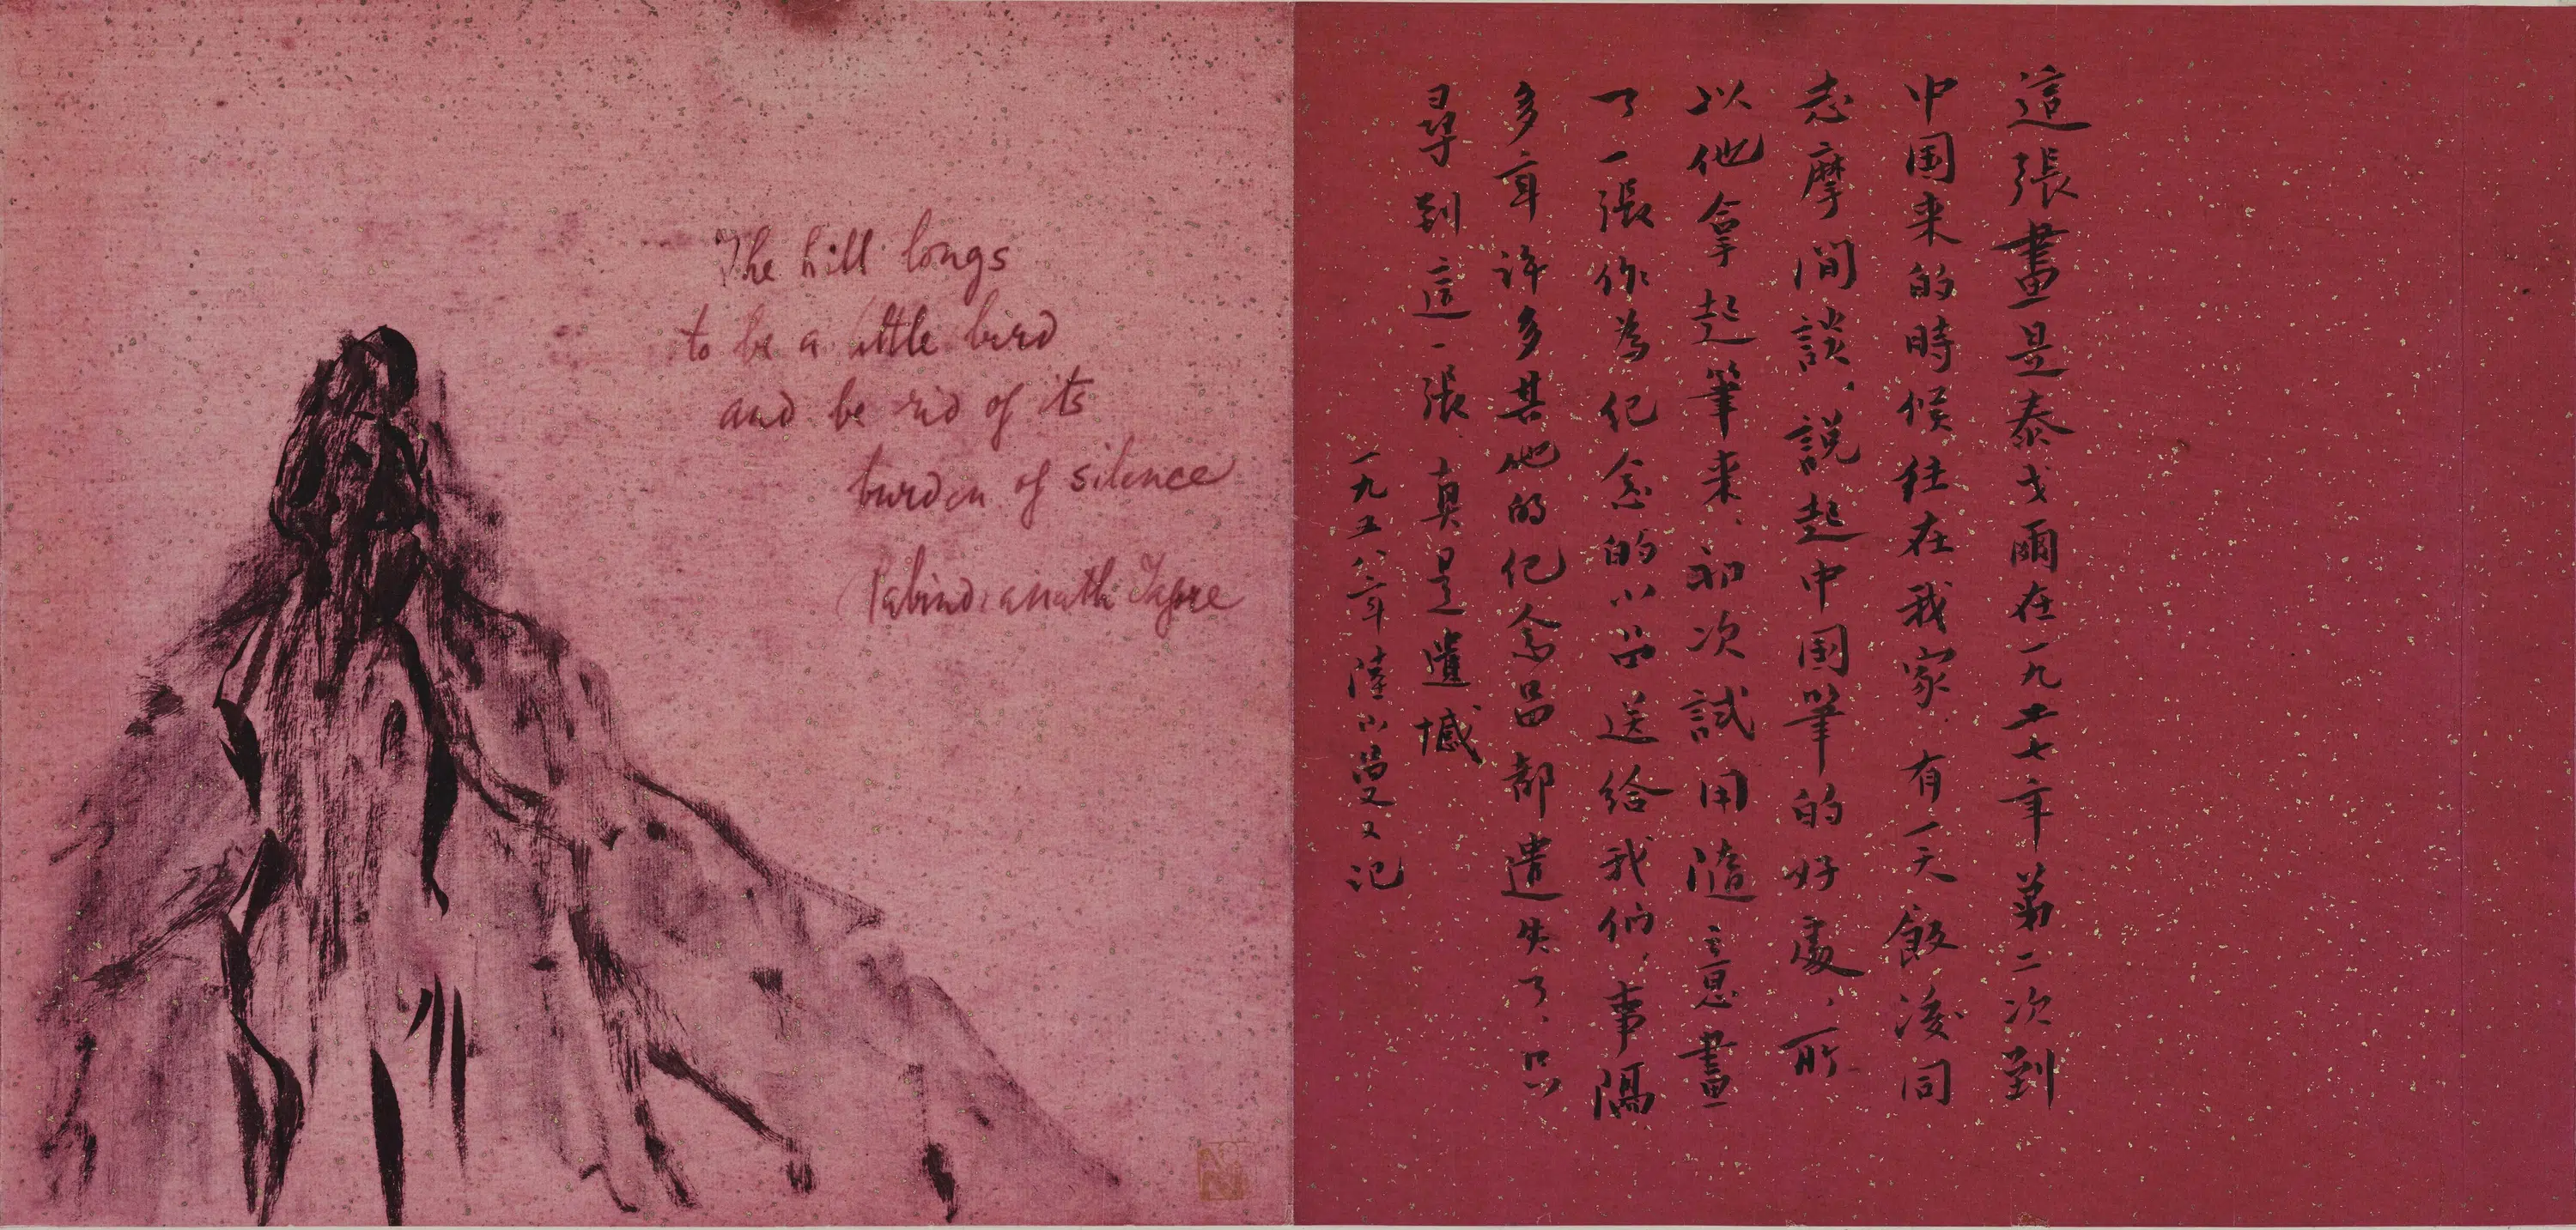 The hill longs
to be a little bird
and be rid of its
burden of silence
Rabindranath Tagore
這張畫是泰戈爾在一九二七年第二次到
中国来的時候住在我家有一天飯後同
志摩閒談、説起中国筆的好處、所
以他拿起筆来、初次試用隨意畫
了一張作為纪念的小品送给我们、事隔
多年许多其他的纪念品都遗失了、只
尋到這一張真是遺憾
一九五八年陸小曼又记